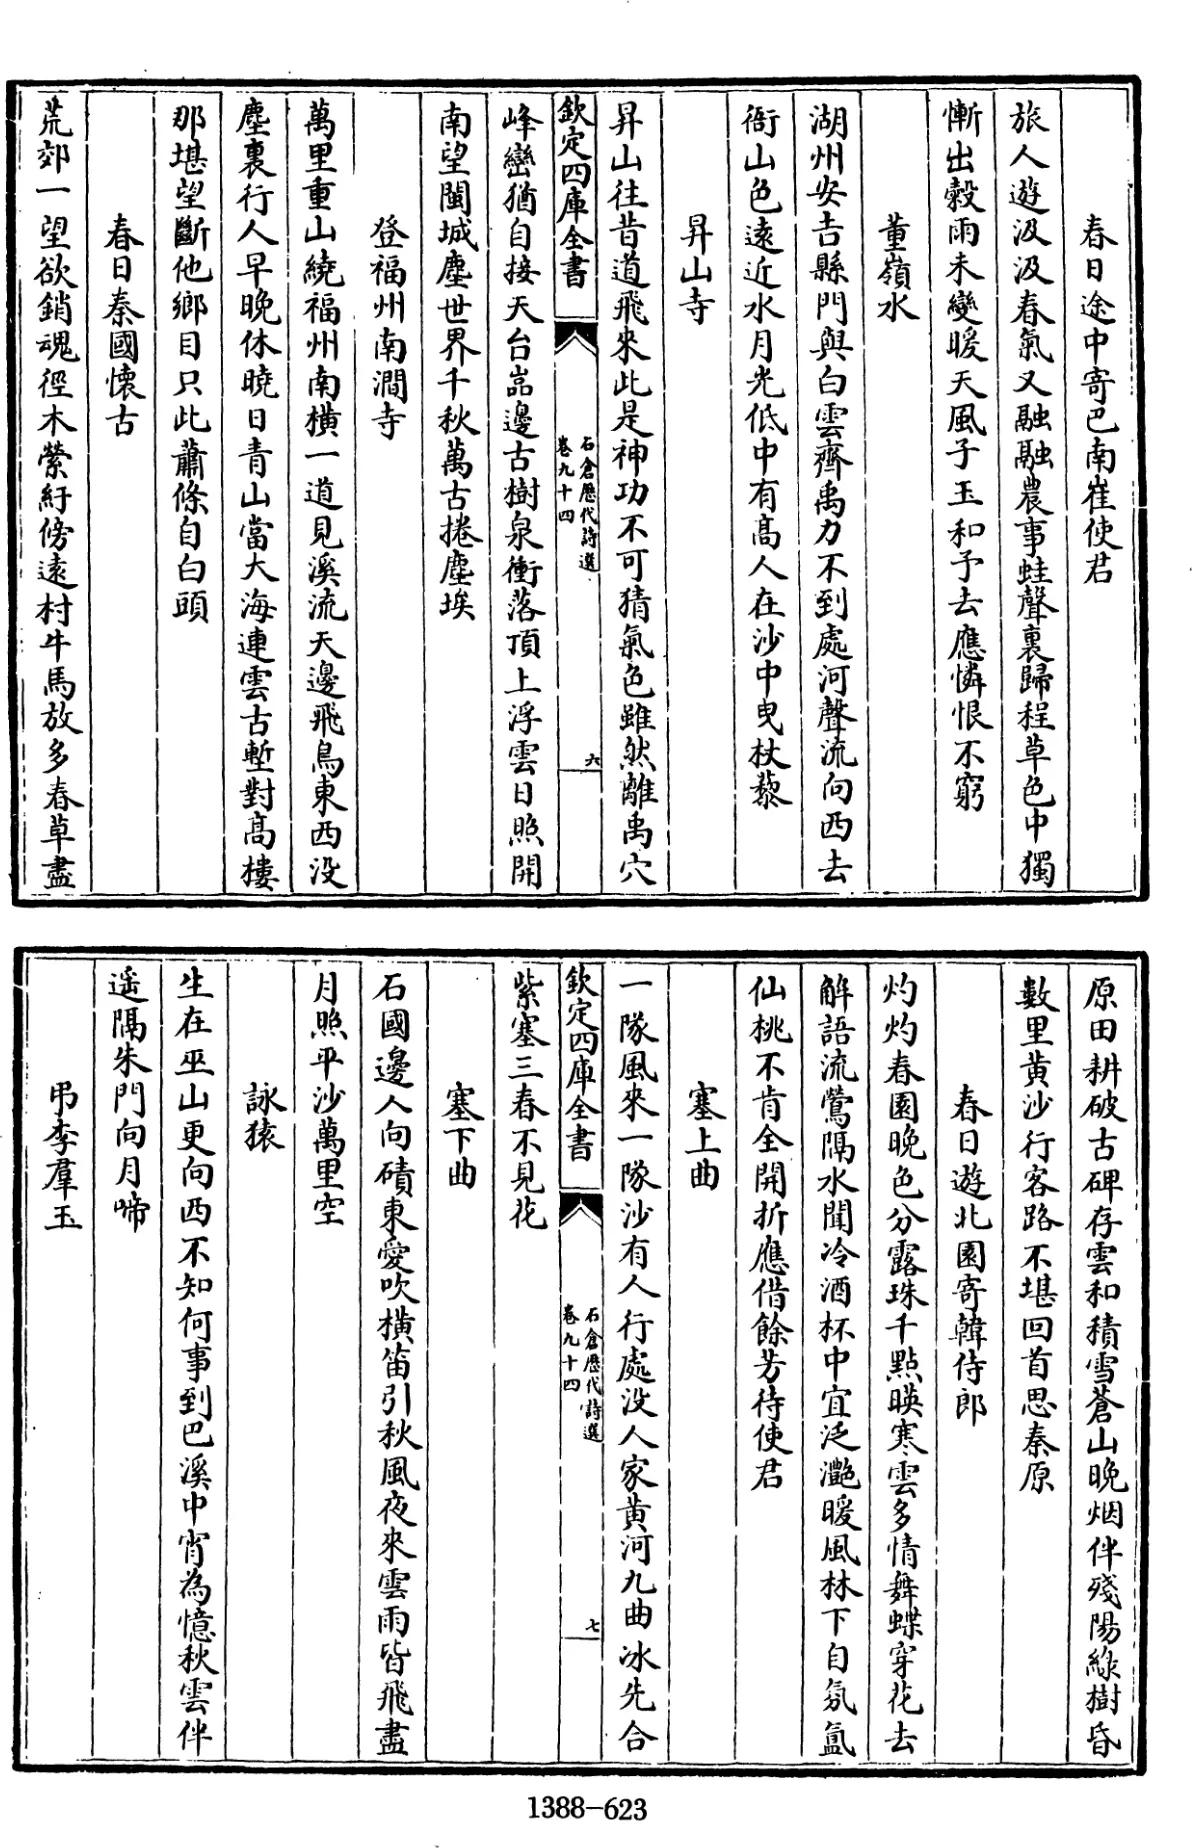 春日途中寄巴南崔使君
旅人遊汲汲春氣又融融農事蛙聲裏歸程草色中獨
慚出穀雨未變暖天風子玉和予去應憐恨不窮
董嶺水
湖州安吉縣門與白雲齊禹力不到處河聲流向西去
衙山色遠近水月光低中有高人在沙中曳杖藜
昇山寺
昇山往昔道飛來此是神功不可猜氣色雖然離禹穴
欽定四庫全書
石倉歷代詩選
卷九十四
六
峰巒猶自接天台嵓邊古樹泉衝落頂上浮雲日照開
南望閩城塵世界千秋萬古捲塵埃
登福州南澗寺
萬里重山繞福州南橫一道見溪流天邊飛鳥東西没
塵裏行人早晚休曉日青山當大海連雲古塹對高樓
那堪望斷他鄉目只此蕭條自白頭
春日秦國懷古
荒郊一望欲銷魂徑木縈紆傍遠村牛馬放多春草盡
原田耕破古碑存雲和積雪蒼山晚烟伴殘陽綠樹昏
數里黄沙行客路不堪回首思秦原
春日遊北園寄韓侍郎
灼灼春園晚色分露珠千點暎寒雲多情舞蝶穿花去
解語流鶯隔水聞冷酒杯中宜泛灧暖風林下自氛氲
仙桃不肯全開折應借餘芳待使君
塞上曲
一隊風來一隊沙有人行處没人家黄河九曲冰先合
欽定四庫全書
石倉歷代詩選
卷九十四
七
紫塞三春不見花
塞下曲
石國邊人向磧東愛吹橫笛引秋風夜來雲雨皆飛盡
月照平沙萬里空
詠猿
生在巫山更向西不知何事到巴溪中宵為憶秋雲伴
遥隔朱門向月啼
弔李羣玉
1388-623